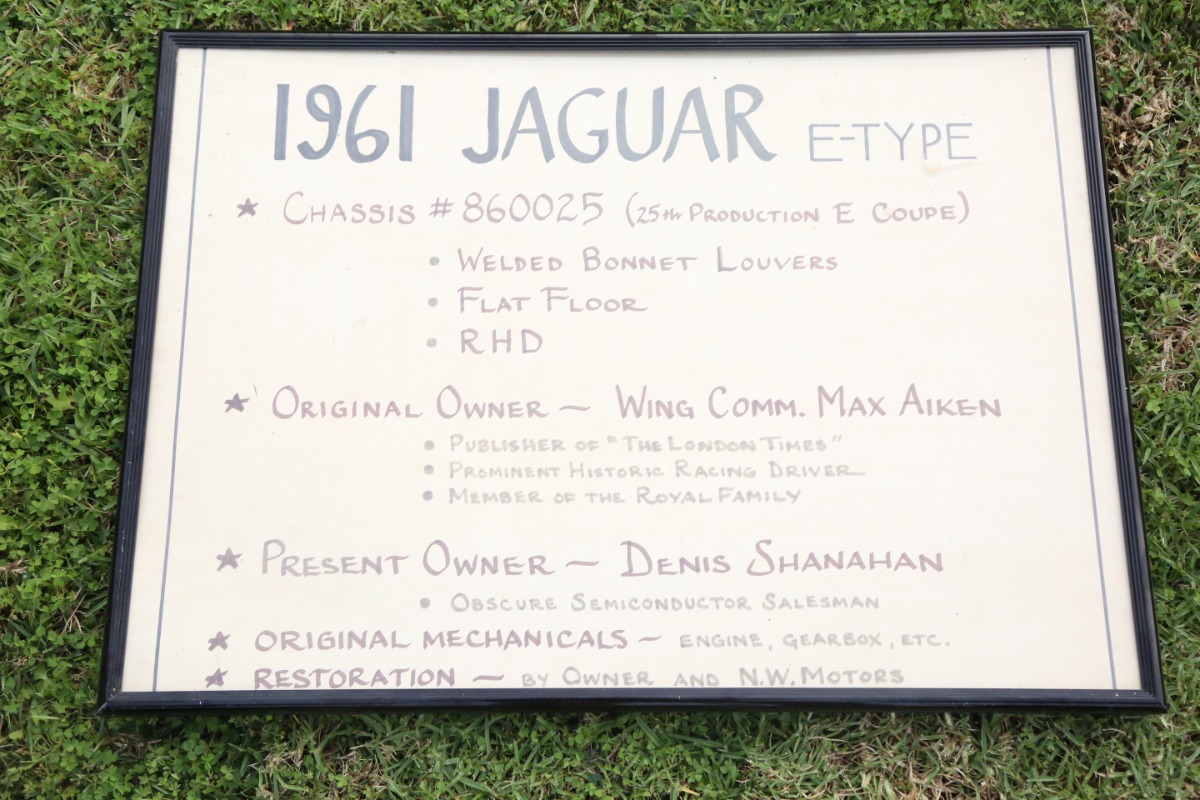 1961 JAGUAR E-TYPE
★ CHASSIS # 860025 (25th PRODUCTION E COUPE)
• WELDED BONNET LOUVERS
• FLAT FLOOR
• RHD
★ ORIGINAL OWNER ~ WING COMM. MAX AIKEN
• PUBLISHER OF "THE LONDON TIMES"
• PROMINENT HISTORIC RACING DRIVER
• MEMBER OF THE ROYAL FAMILY
★ PRESENT OWNER ~ DENIS SHANAHAN
• OBSCURE SEMICONDUCTOR SALESMAN
★ ORIGINAL MECHANICALS ~ ENGINE, GEARBOX, ETC.
★ RESTORATION ~ BY OWNER AND N.W. MOTORS